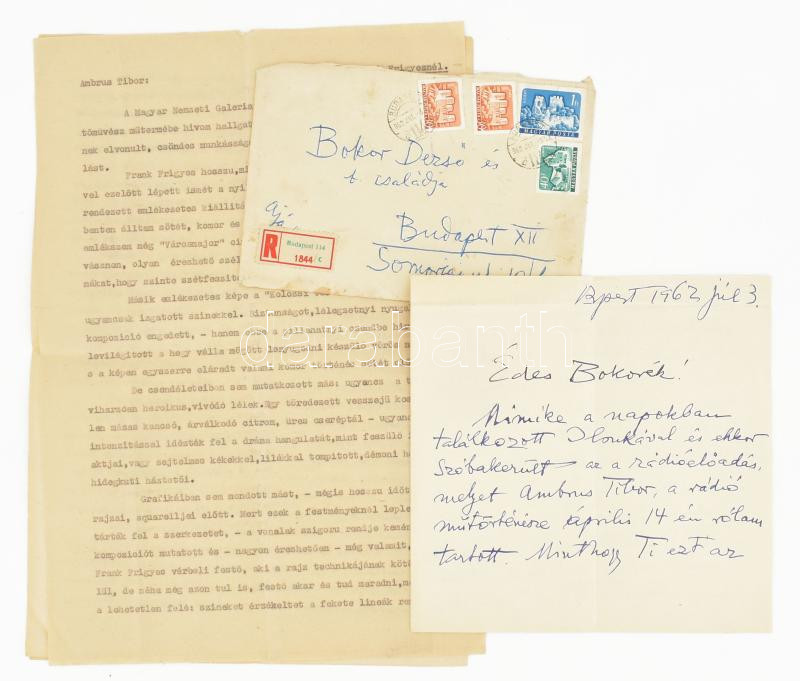 Frigyesnél.
Ambrus Tibor:
A Magyar Nemzeti Galeria
tömüvész mütermébe hivom hallgat
nek elvonult, csöndes munkásság
lást.
Frank Frigyes hosszu,mi
vel ezelőtt lépett ismét a nyil
rendezett emlékezetes kiállitá
benten álltam sötét, komor és
emlékszem még "Városmajor" ci
vásznan, olyan érezhető szél
mákat,hogy szinte szétfeszit
Másik emlékezetes képe a "Kolozsi
ugyancsak izgatott szinekkel. Biztonságot,lélegzetnyi nyuga
kompozició engedett, - hanem
levilágitott a hegy válla mögött lenyugodni készülő vörös n
s a képen egyszerre eláradt valami komor történés
De csendéleteiben sem mutatkozott más: ugyanes a t
viharosan heroikus,vivódó lélek.Egy töredezett vesszejü kos
len mázas kancsó, árválkodó citrom, üres cseréptál - ugyan
intenzitással idézték fel a dráma hangulatát,mint feszülő i
aktjai,vagy sejtelmes kékekkel,lilákkal tompitott,démoni h
hidegkuti háztetői.
Grafikáiban sem mondott mást, - mégis hosszu időt
rajzai, aquarelljei előtt. Mert ezek a festményeknél leple
tárták fel a szerkezetet, - a vonalak szigoru rendje kemén
kompoziciót mutatott és - nagyon érezhetően - még valamit,
Frank Frigyes vérbeli festő, aki a rajz technikájának köt
lül, de néha még azon tul is, festő akar és tud maradni,ne
a lehetetlen felé: szineket érzékeltet a fekete lineák re
MAGYAR POSTA
40f
Bokor Dezső és
t. családja
Budapest XII
R
Budapest 114
1844/c
Bpest 1962 júl 3.
Édes Bokorék!
Mimike a napokban
találkozott Ilonkával és ekkor
szóbakerült az a rádióelőadás,
melyet Ambrus Tibor, a rádió
műtörténésze április 14 én rólam
tartott. Minthogy Ti ezt az
darabanth